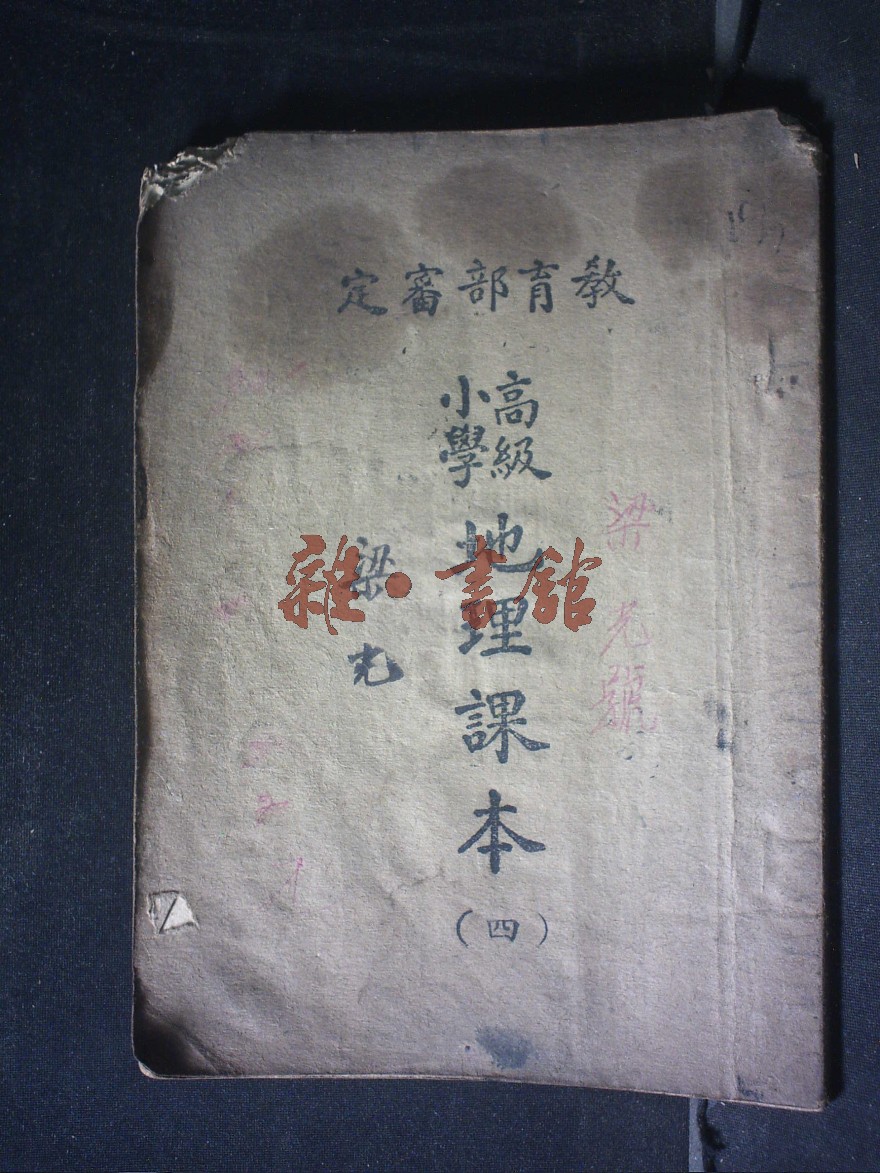 教育部審定
高級
小學
地理課本
（四）
梁光號
梁光
雜·書館